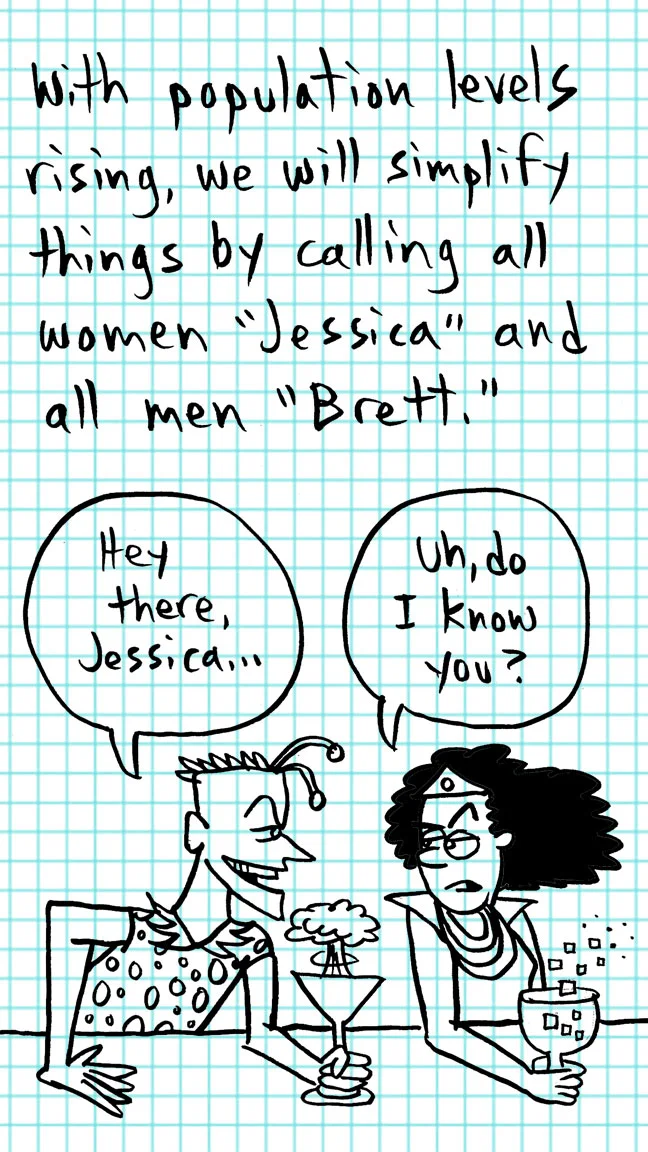 With population levels
rising, we will simplify
things by calling all
women "Jessica" and
all men "Brett."
Hey
there,
Jessica...
Uh, do
I know
you?